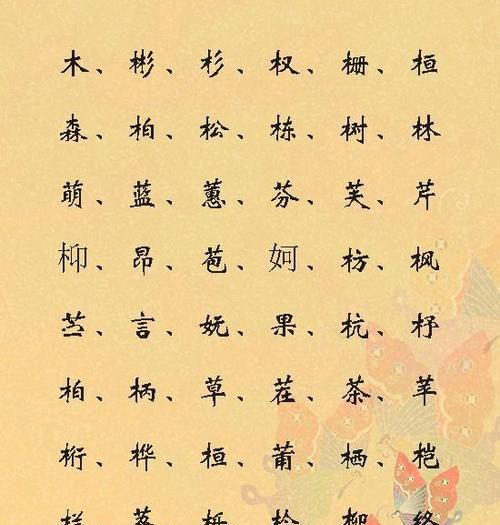 木、彬、杉、杈、栅、桓
森、柏、松、栋、树、林
萌、蓝、蕙、芬、芙、芹
枊、昂、苞、妸、枋、枫
苎、言、妩、果、杭、杼
柏、柄、草、茬、茶、苹
桁、桦、桓、莆、栖、桤